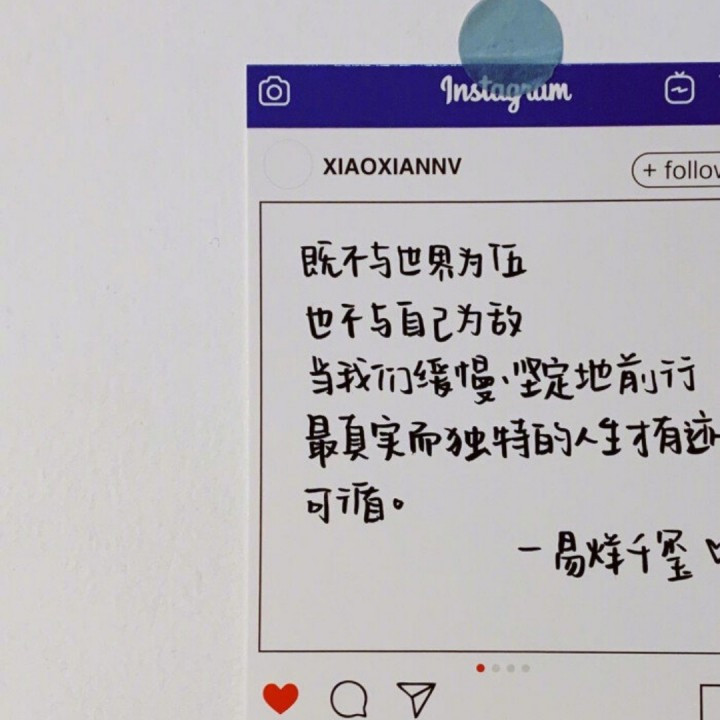 Instagram
XIAOXIANNV
+ follow
既不与世界为伍
也不与自己为敌
当我们缓慢、坚定地前行
最真实而独特的人生才有迹
可循。
—易烊千玺